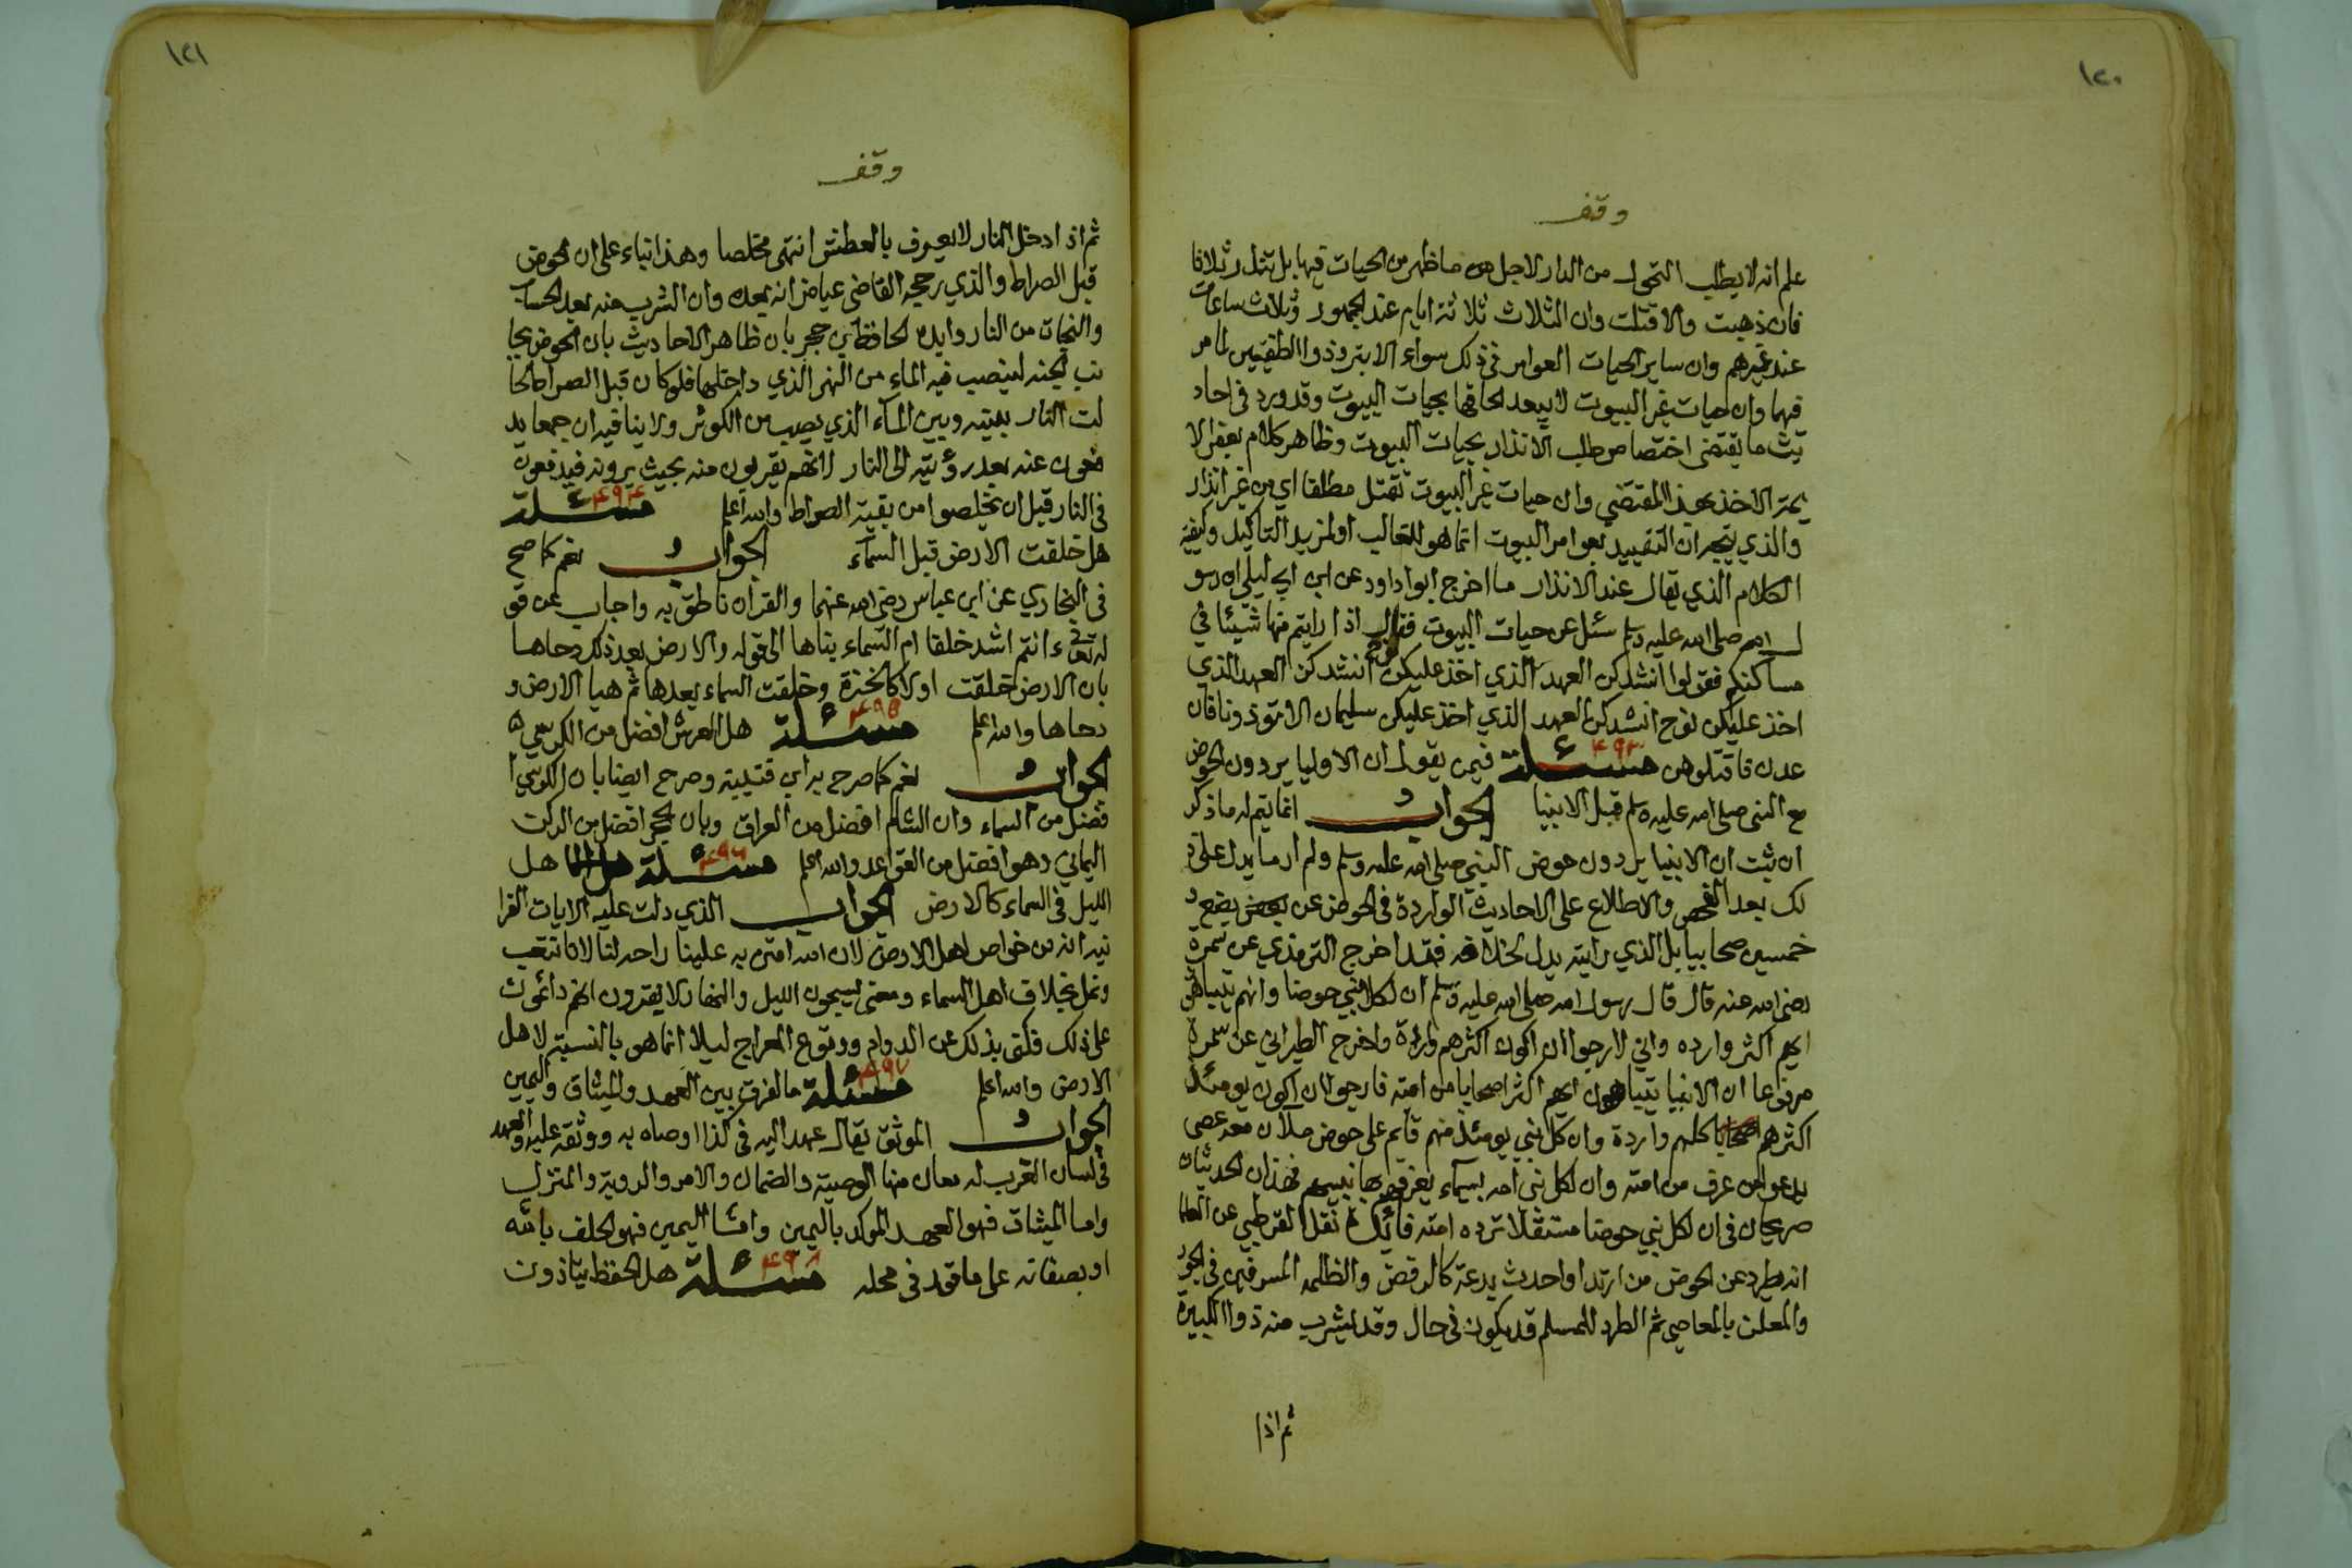 ١٢٠
وقف
علم انه لا يطلب التحول من الدار لاجل ما ظهر من الحيات فيها بل تنذر ثلاثا
فان ذهبت والا قتلت وان الثلاث ثلاثة ايام عند الجمهور وثلاث ساعات
عند غيرهم وان ساير الحيات العوامر في ذلك سواء الا الابتر وذو الطفيتين لما مر
فيهما وان حيات غير البيوت لا يبعد الحاقها بحيات البيوت وقد ورد في احاد
يث ما يقتضى اختصاص طلب الانذار بحيات البيوت وظاهر كلام بعض الا
يمة الاخذ بهذا المقتضي وان حيات غير البيوت تقتل مطلقا اي من غير انذار
والذي يتجه ان التقييد بعوامر البيوت انما هو للغالب او لمزيد التاكيد وكيفية
الكلام الذي يقال عند الانذار ما اخرج ابوا داود عن ابن ابي ليلى ان رسو
ل الله صلى الله عليه وسلم سئل عن حيات البيوت فقال اذا رايتم منها شيئا في
مساكنكم فقولوا انشدكن العهد الذي اخذ عليكن نوح انشدكن العهد الذي
اخذ عليكن نوح انشدكن العهد الذي اخذ عليكن سليمان الا تؤذونا فان
عدن فاقتلوهن مسئلة ٤٩٣ فيمن يقول ان الاوليا يردون الحوض
مع النبى صلى الله عليه وسلم قبل الانبيا الجواب انما يتم له ما ذكر
ان ثبت ان الانبيا يردون حوض النبي صلى الله عليه وسلم ولم ار ما يدل على ذ
لك بعد الفحص والاطلاع على الاحاديث الواردة في الحوض عن بضع و
خمسين صحابيا بل الذي رايته يدل لخلافه فقد اخرج الترمذي عن سمرة
رضى الله عنه قال قال رسول الله صلى الله عليه وسلم ان لكل نبي حوضا وانهم يتباهون
ايهم اكثر وارده واني لارجوا ان اكون اكثرهم واردة واخرج الطبراني عن سمرة
مرفوعا ان الانبيا يتباهون ايهم اكثر اصحابا من امته فارجوا ان اكون يومئذ
اكثرهم كلهم واردة وان كل نبي يومئذ منهم قايم على حوض ملآن معه عصى
يدعوا من عرف من امته وان لكل نبى امه بسيماء يعرفهم بها نبيهم فهذان الحديثان
صريحان في ان لكل نبي حوضا مستقلا ترده امته نقل القرطبي عن العلما
انه يطرد عن الحوض من ارتد او احدث بدعة كالرفض والظلمه المسرفين في الجور
والمعلن بالمعاصي ثم الطرد للمسلم قد يكون في حال وقد يشرب منه ذوا الكبيرة
ثم اذا
١٢١
وقف
ثم اذا دخل النار لا يعرف بالعطش انتهى مخلصا وهذا بناء على ان الحوض
قبل الصراط والذي رجحه القاضى عياض انه بعده وان الشرب منه بعد الحساب
والنجاة من النار وايده الحافظ ابن حجر بان ظاهر الاحاديث بان الحوض بجا
نب الجنه لينصب فيه الماء من النهر الذي داخلها فلو كان قبل الصراط لحا
لت النار بينه وبين الماء الذي يصب من الكوثر ولا ينافيه ان جمعا يد
فعون عنه بعد رؤيته الى النار لانهم يقربون منه بحيث يرونه فيدفعون
في النار قبل ان يخلصوا من بقية الصراط والله اعلم مسئلة ٤٩٤
هل خلقت الارض قبل السماء الجواب نعم كما صح
في البخاري عن ابن عباس رضى الله عنهما والقران ناطق به واجاب عن قو
له تعالى ءانتم اشد خلقا ام السماء بناها الى قوله والارض بعد ذلك دحاها
بان الارض خلقت اولا كالخبزة وخلقت السماء بعدها ثم هيا الارض و
دحاها والله اعلم مسئلة ٤٩٥ هل العرش افضل من الكرسي
الجواب نعم كما صرح به ابن قتيبة وصرح ايضا بان الكرسي ا
فضل من السماء وان الشام افضل من العراق وبان الحجر افضل من الركن
اليماني وهو افضل من القواعد والله اعلم مسئلة ٤٩٦ هل
الليل في السماء كالارض الجواب الذي دلت عليه الايات القرا
نيه انه من خواص اهل الارض لان الله امتن به علينا راحه لنا لانا نتعب
ونمل بخلاف اهل السماء ومعنى يسبحون الليل والنهار لا يفترون انهم دائمون
على ذلك فكنى بذلك عن الدوام ووقوع المعراج ليلا انما هو بالنسبة لاهل
الارض والله اعلم مسئلة ٤٩٧ ما الفرق بين العهد والميثاق واليمين
الجواب الموثق يقال عهد اليه في كذا اوصاه به ووثقه عليه والعهد
في لسان العرب له معان منها الوصية والضمان والامر والروية والمنزل
واما الميثاق فهو العهد الموكد باليمين وامّا اليمين فهو الحلف بالله
او بصفاته على ما في محله مسئلة ٤٩٨ هل الحفظة يتاذون